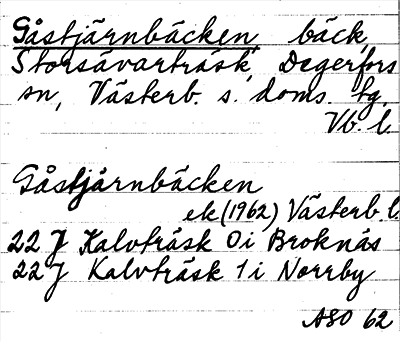 Gåstjärnbäcken, bäck,
Storsävarträsk, Degerfors
sn, Västerb. s. doms. tg.
Vb. l.
Gåstjärnbäcken
ek (1962) Västerb. l.
22 J Kalvträsk 0 i Broknäs
22 J Kalvträsk 1 i Norrby
ASO 62